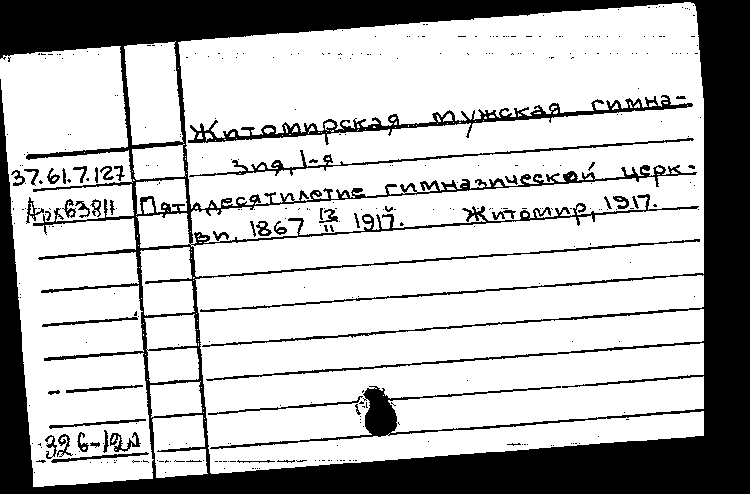 Житомирская мужская гимна-
зия, 1-я.
37.61.7.127
Арх63811 Пятидесятилетие гимназической церк-
ви, 1867 13/II 1917. Житомир, 1917.
32 6-12